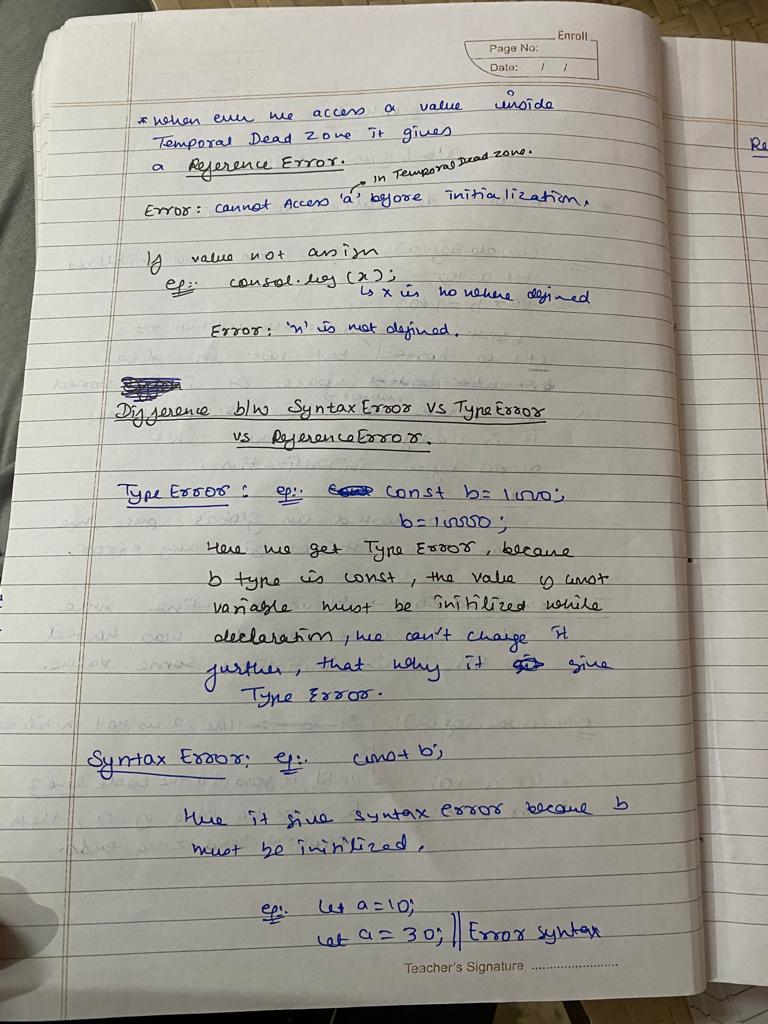 Enroll
Page No:
Date: / /
* when ever we access a value inside
Temporal Dead Zone it gives
a Reference Error.
in Temporal Dead zone.
Error: cannot Access 'a' before initialization.
If value not assign
eg:. consol.log (x);
↳ x is no where defined
Error: 'x' is not defined.
Difference b/w Syntax Error vs Type Error
vs Reference Error.
Type Error: eg:. const b = 1000;
b = 10000;
Here we get Type Error, because
b type is const, the value of const
variable must be initilized while
declaration, we can't change it
further, that why it give
Type Error.
Syntax Error: eg:. const b;
Here it give syntax error because b
must be initilized.
eg:. let a = 10;
let a = 30; || Error syntax
Teacher's Signature ........................
Re